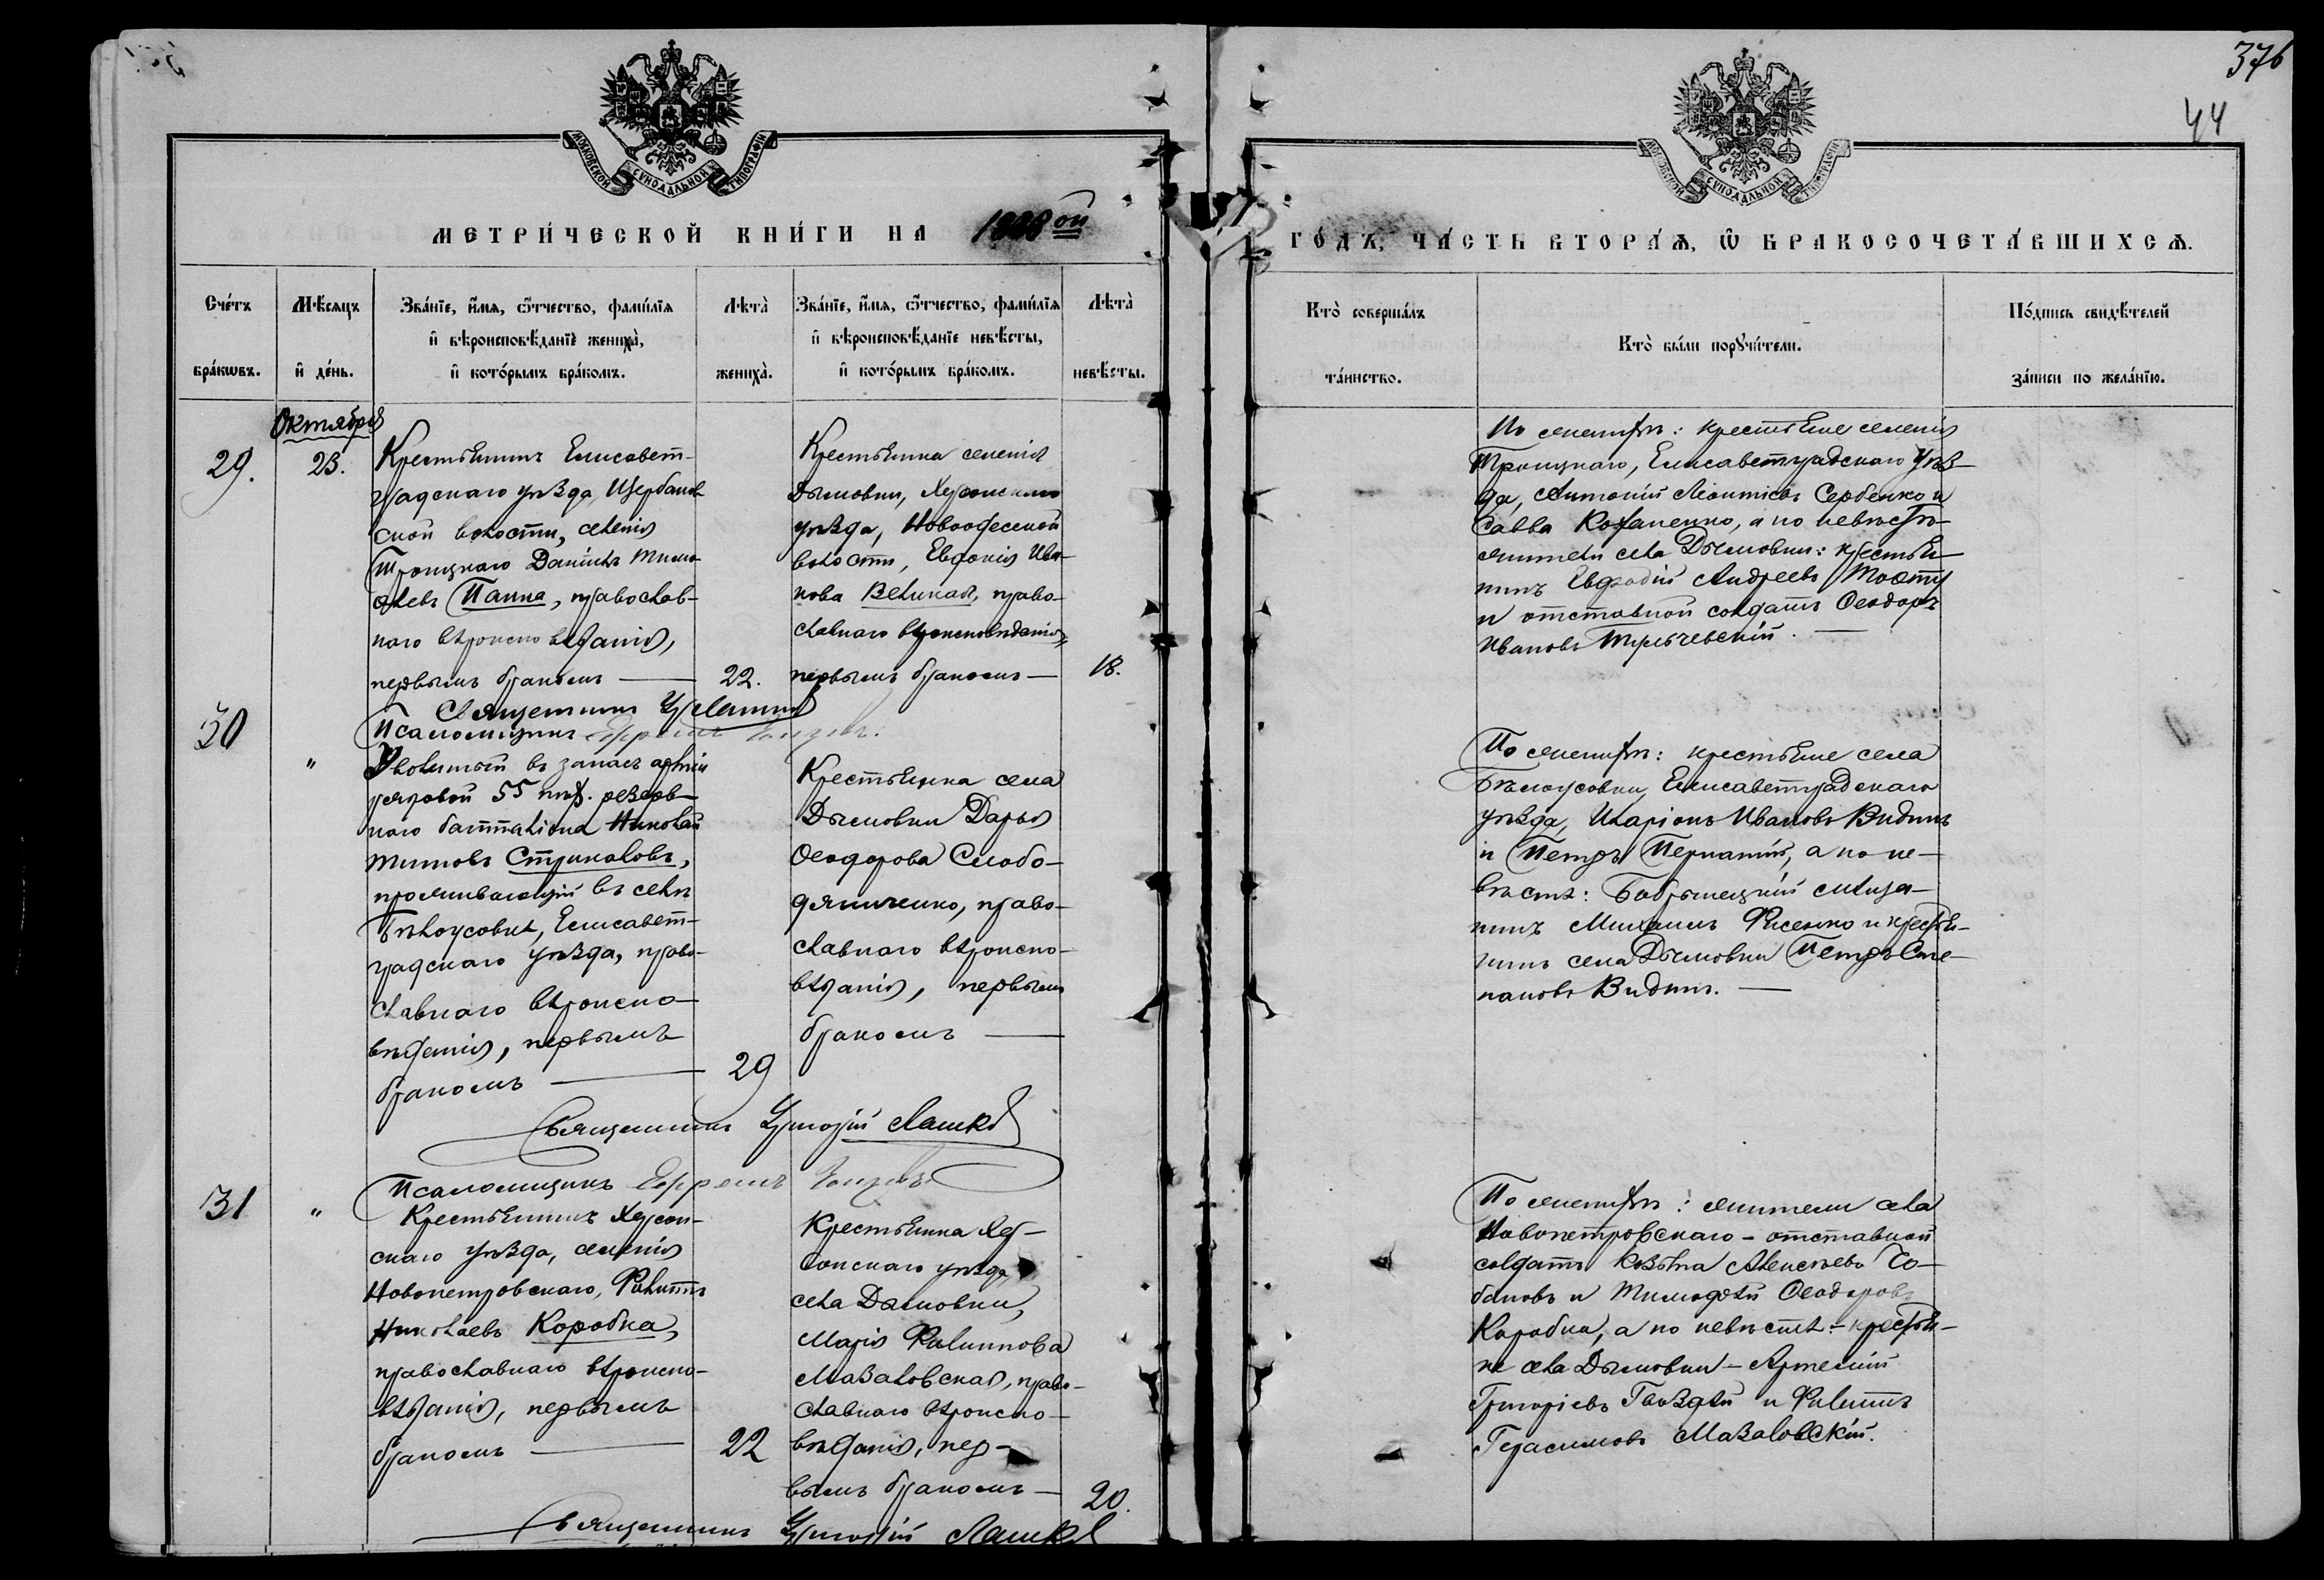 376
44
МОСКОВСКОЙ СѴНОДАЛЬНОЙ ТИПОГРАФІИ
МОСКОВСКОЙ СѴНОДАЛЬНОЙ ТИПОГРАФІИ
МЕТРИ́ЧЕСКОЙ КНИ́ГИ НА 1888ой
ГО́ДЪ, ЧА́СТЬ ВТОРА́Ѧ, Ѽ БРАКОСОЧЕТА́ВШИХСѦ.
Сче́тъ бра́кѡвъ.
Мѣ́сяцъ и҆ де́нь.
Зва́нїе, и҆́мя, ѻ҆́тчество, фами́лїя
и҆ вѣроисповѣ́данїе жениха̀,
и҆ кото́рымъ бра́комъ.
Лѣта̀ жениха̀.
Зва́нїе, и҆́мя, ѻ҆́тчество, фами́лїя
и҆ вѣроисповѣ́данїе невѣ́сты,
и҆ кото́рымъ бра́комъ.
Лѣта̀ невѣ́сты.
Кто̀ соверша́лъ та́инство.
Кто̀ бы́ли порꙋчи́тели.
По́дпись свидѣ́телей за́писи по жела́нїю.
29.
Октября
23.
Крестьянинъ Елисавет-
градскаго уѣзда, Щербанов-
ской волости, селенія
Троицкаго Даніилъ Тимо-
ѳеевъ Панна, православ-
наго вѣроисповѣданія,
первымъ бракомъ — 22.
Крестьянка селенія
Дымовки, Херсонскаго
уѣзда, Новоодесской
волости, Евдокія Ива-
нова Великая, право-
славнаго вѣроисповѣданія,
первымъ бракомъ — 18.
По женихѣ: крестьяне селенія
Троицкаго, Елисаветградскаго уѣз-
да, Антоній Леонтіевъ Сербенко и
Савва Кожаненко, а по невѣстѣ-
жители села Дымовки: крестья-
нинъ Евфродій Андреевъ
и отставной солдатъ Ѳеодоръ
Ивановъ
Священникъ
Псаломщикъ Ефремъ
30
"
Уволенный въ запасъ арміи
рядовой 55 пѣх. резерв-
наго батталіона Николай
Титовъ Стрикаловъ,
проживающій въ селѣ
Бѣлоусовкѣ, Елисавет-
градскаго уѣзда, право-
славнаго вѣроиспо-
вѣданія, первымъ
бракомъ — 29
Крестьянка села
Дымовки Дарья
Ѳеодорова Слобо-
дяниченко, право-
славнаго вѣроиспо-
вѣданія, первымъ
бракомъ —
По женихѣ: крестьяне села
Бѣлоусовки, Елисаветградскаго
уѣзда, Иларіонъ Ивановъ Видинъ
и Петръ Пернатій, а по не-
вѣстѣ: Бобринецкій мѣща-
нинъ Михаилъ Фисенко и крестья-
нинъ села Дымовки Петръ Сте-
пановъ Видинъ. —
Священникъ Григорій Лашков
Псаломщикъ Ефремъ
31
"
Крестьянинъ Херсон-
скаго уѣзда, селенія
Новопетровскаго, Филиппъ
Николаевъ Коробка,
православнаго вѣроиспо-
вѣданія, первымъ
бракомъ — 22
Крестьянка Хер-
сонскаго уѣзда,
села Дымовки,
Марія Филиппова
Мазаловская, право-
славнаго вѣроиспо-
вѣданія, пер-
вымъ бракомъ — 20.
По женихѣ: жители села
Новопетровскаго - отставной
солдатъ Козьма Алексѣевъ Чо-
бановъ и Тимоѳей Ѳеодоровъ
Коробка, а по невѣстѣ - крестья-
не села Дымовки - Артемій
Григоріевъ Гвоздей и Филиппъ
Герасимовъ Мазаловскій.
Священникъ Григорій Лашков